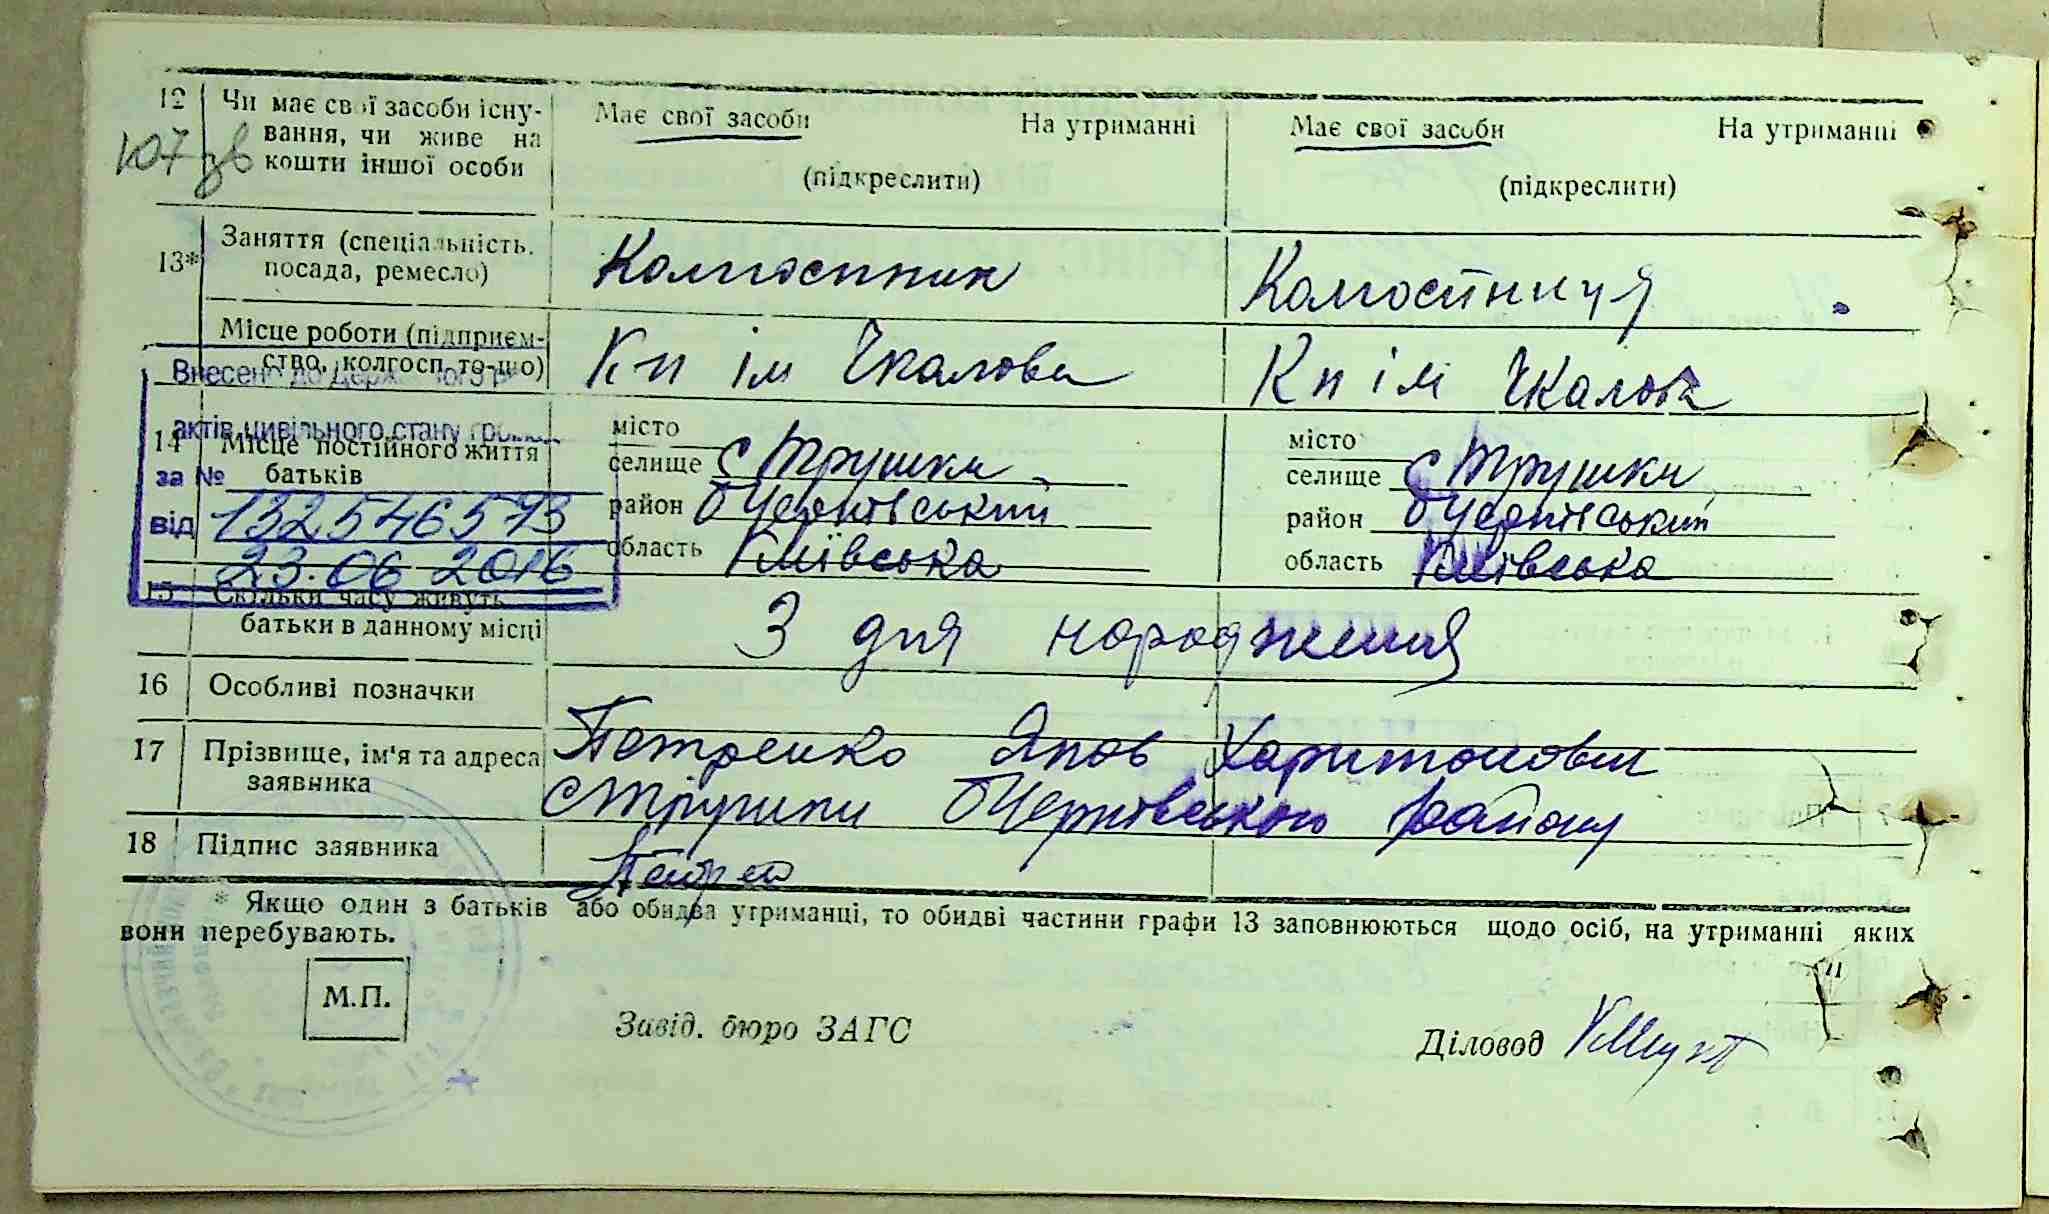 12 Чи має свої засоби існу- Має свої засоби На утриманні Має свої засоби На утриманні
вання, чи живе на
107 зв кошти іншої особи (підкреслити) (підкреслити)
Заняття (спеціальність. Колгоспник Колгоспниця
13* посада, ремесло)
Місце роботи (підприєм- К-п ім Чкалова К п ім Чкалова
ство, колгосп то-що)
Внесено до Державного
актів цивільного стану громадян
14 Місце постійного життя місто місто
за № батьків селище с Трушки селище с Трушки
від 1325546573 район БЧерківський район БЧерківський
23.06 2016 область Київська область Київська
15 Скільки часу живуть З дня народження
батьки в данному місці
16 Особливі позначки
17 Прізвище, ім'я та адреса Петренко Яков Харитонович
заявника с Трушки БЧерківського району
18 Підпис заявника
* Якщо один з батьків або обидва утриманці, то обидві частини графи 13 заповнюються щодо осіб, на утриманні яких
вони перебувають.
М.П.
Завід. бюро ЗАГС Діловод